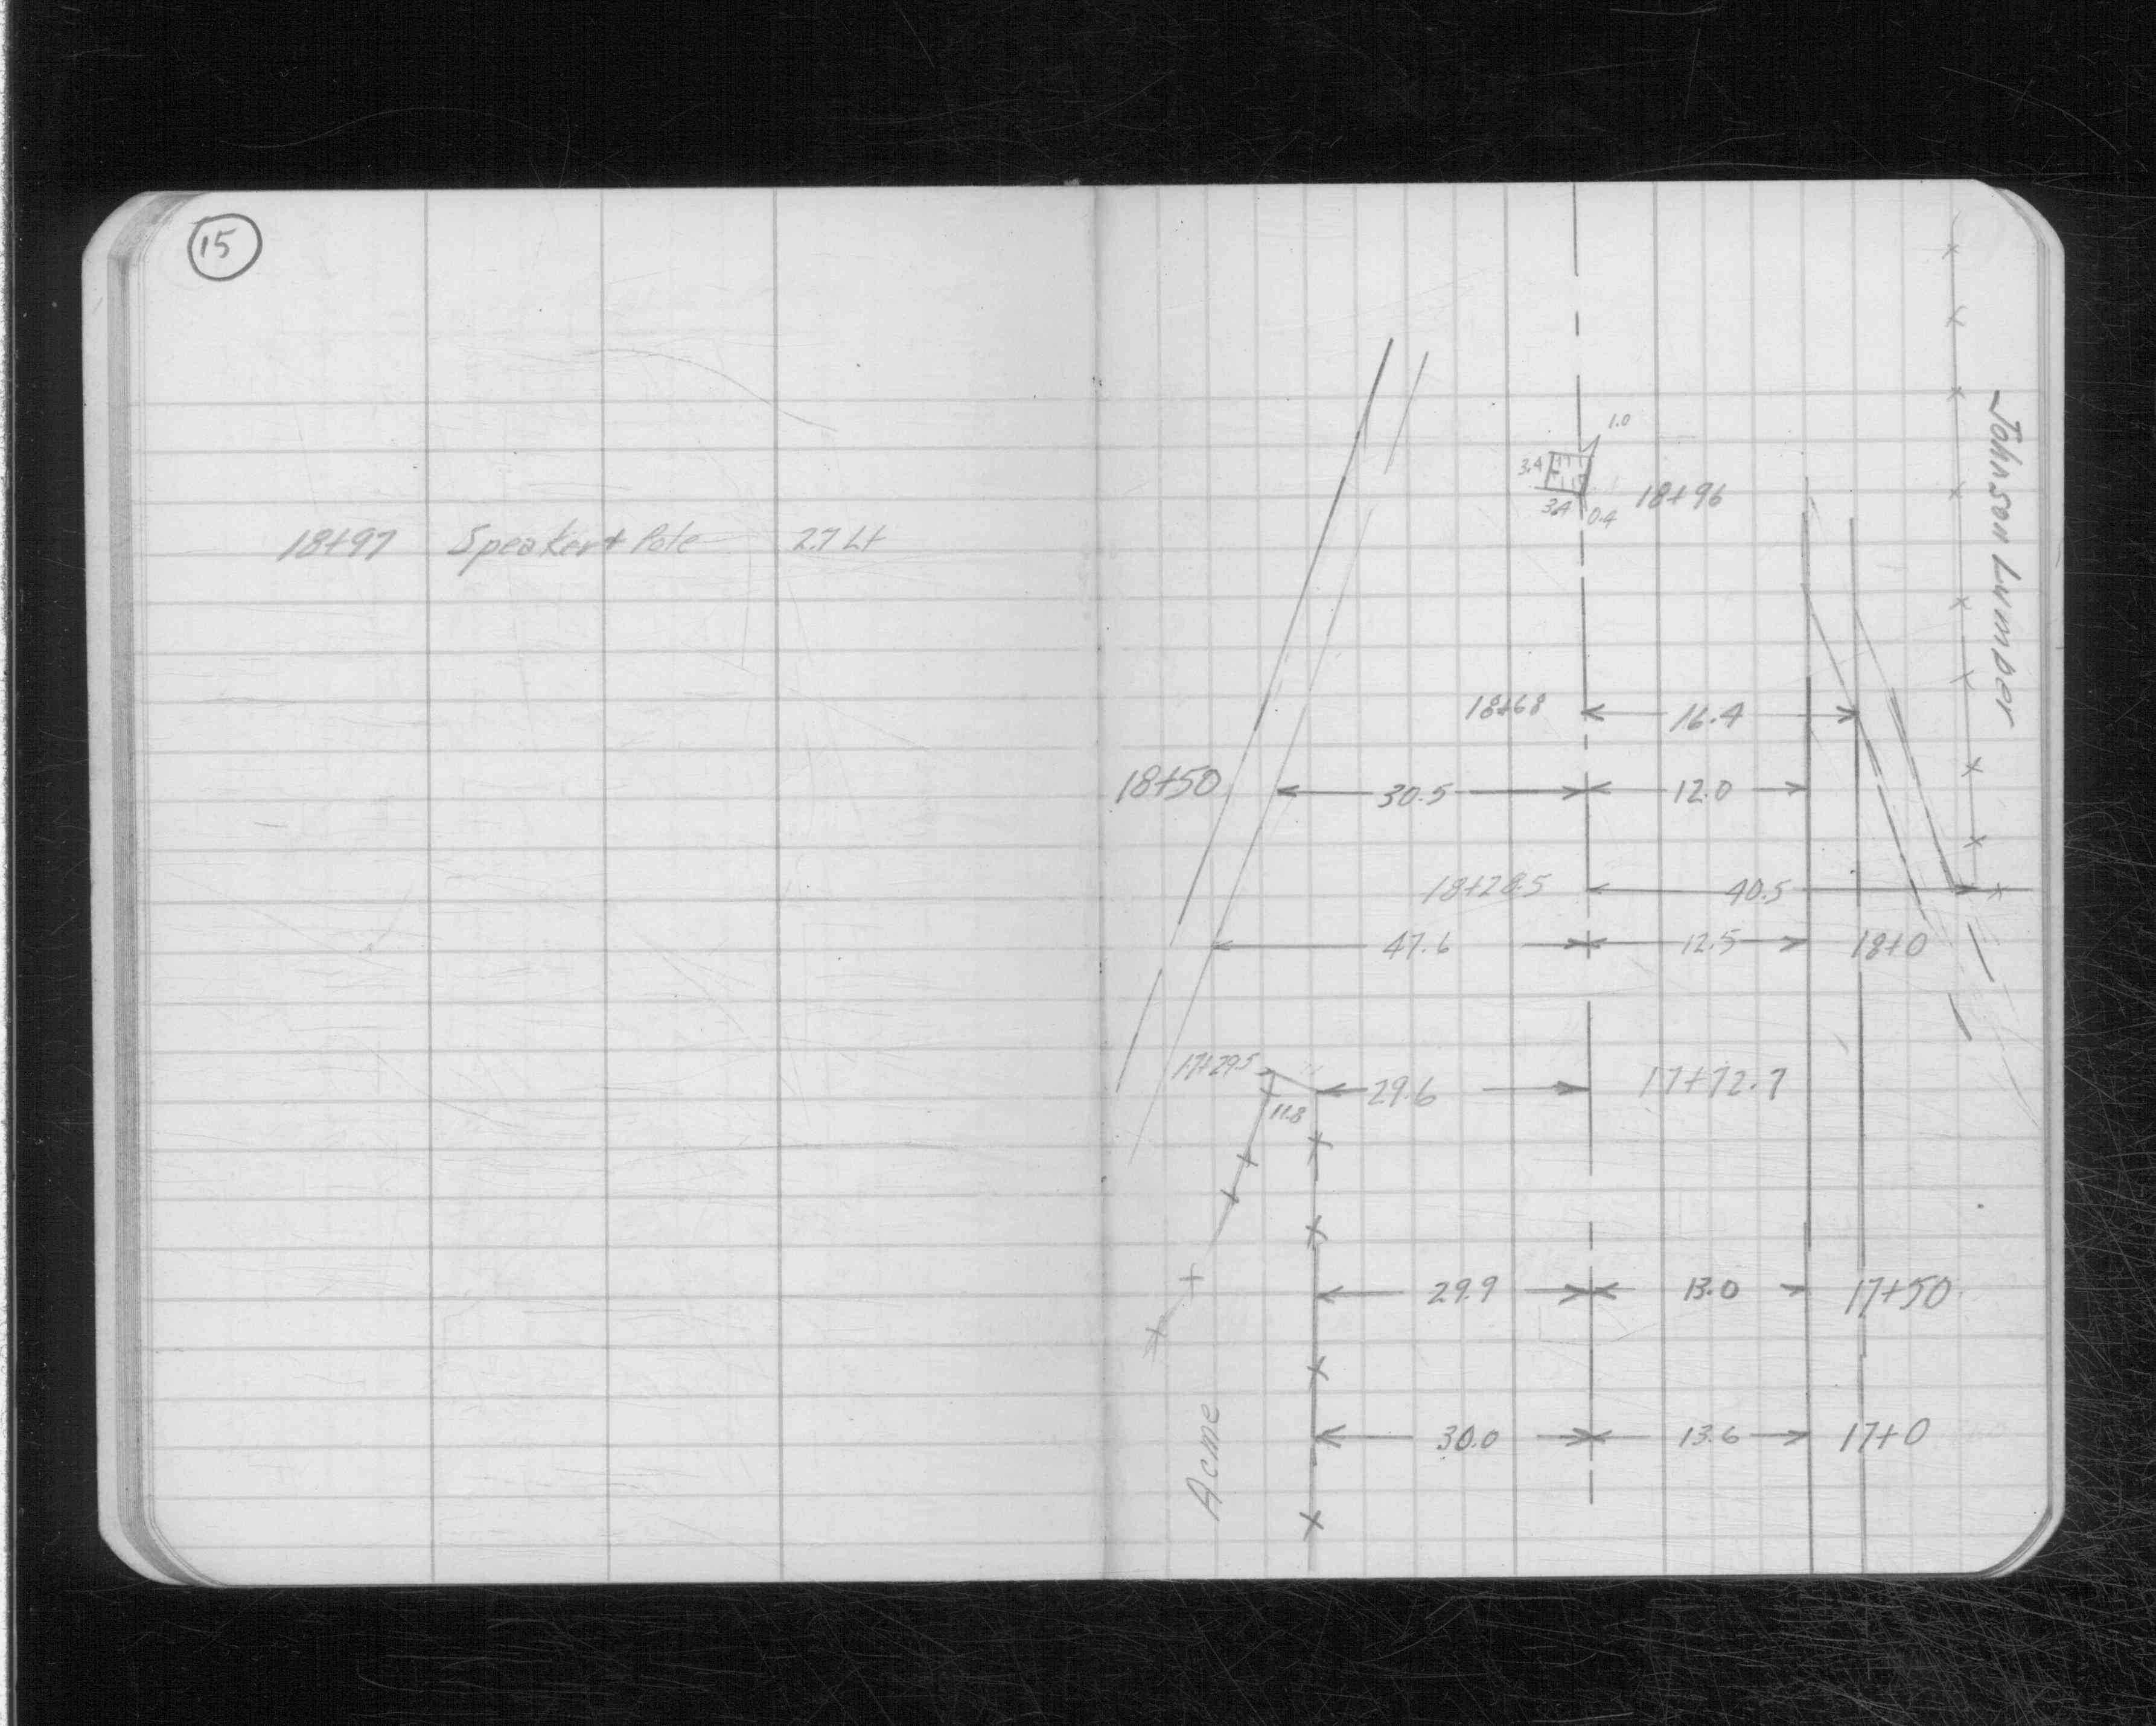 15
18+97 Speaker+ Pole 2.7 Lt
1.0
3.4
3.4 0.4 18+96
Johnson Lumber
18+68 16.4
18+50 30.5 12.0
18+28.5 40.5
47.6 12.5 18+0
17+29.5
29.6 17+72.7
11.8
29.9 13.0 17+50
Acme
30.0 13.6 17+0